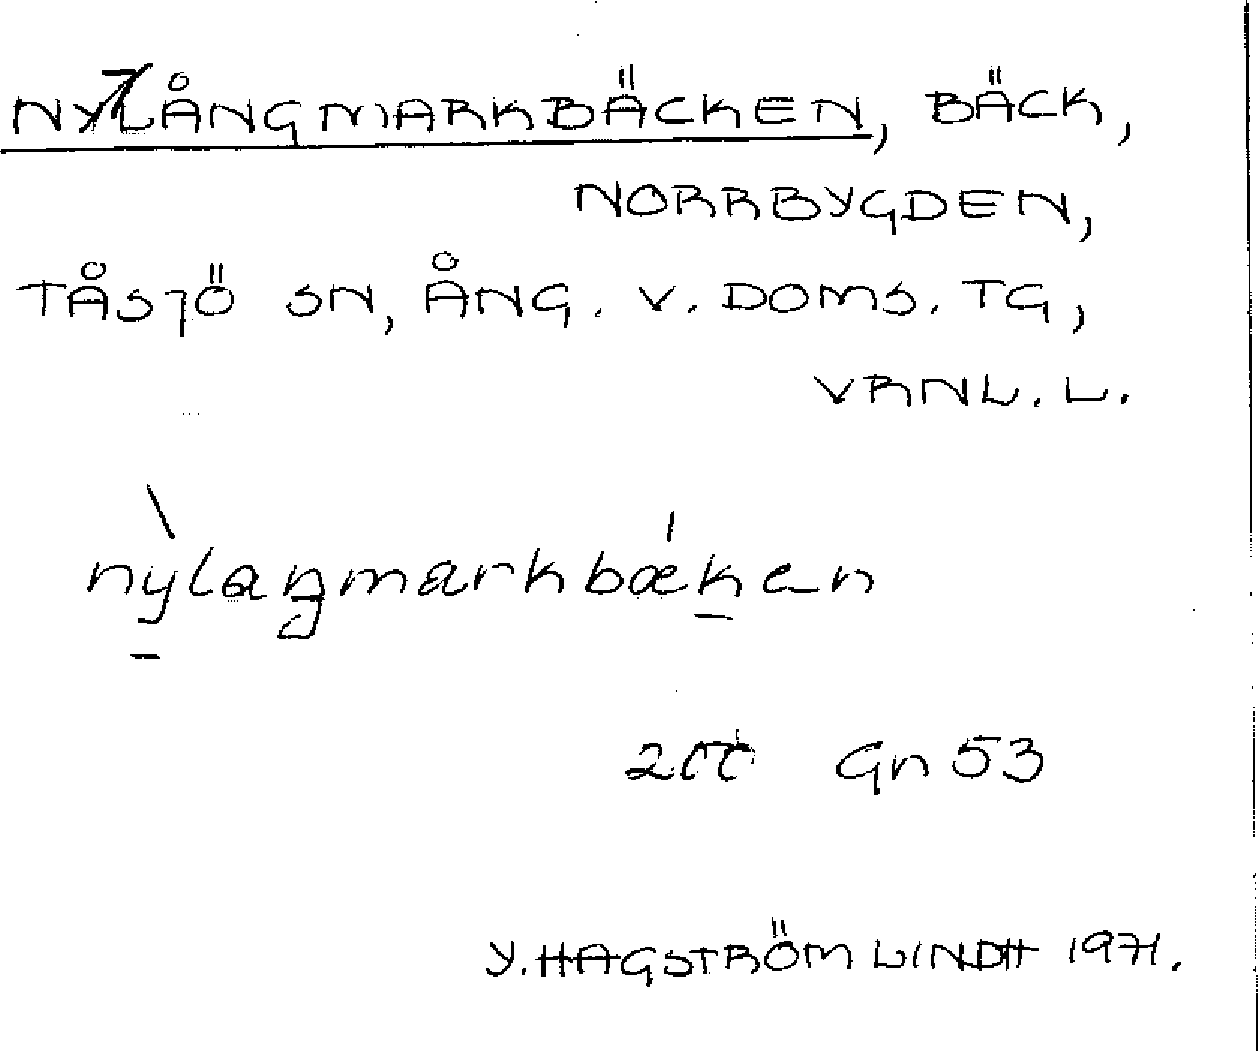 NYLÅNGMARKBÄCKEN, BÄCK,
NORRBYGDEN,
TÅSJÖ SN, ÅNG. V. DOMS. TG,
VRNL. L.
nylaŋmarkbækan
Gn 53
Y. HAGSTRÖM LINDH 1971.